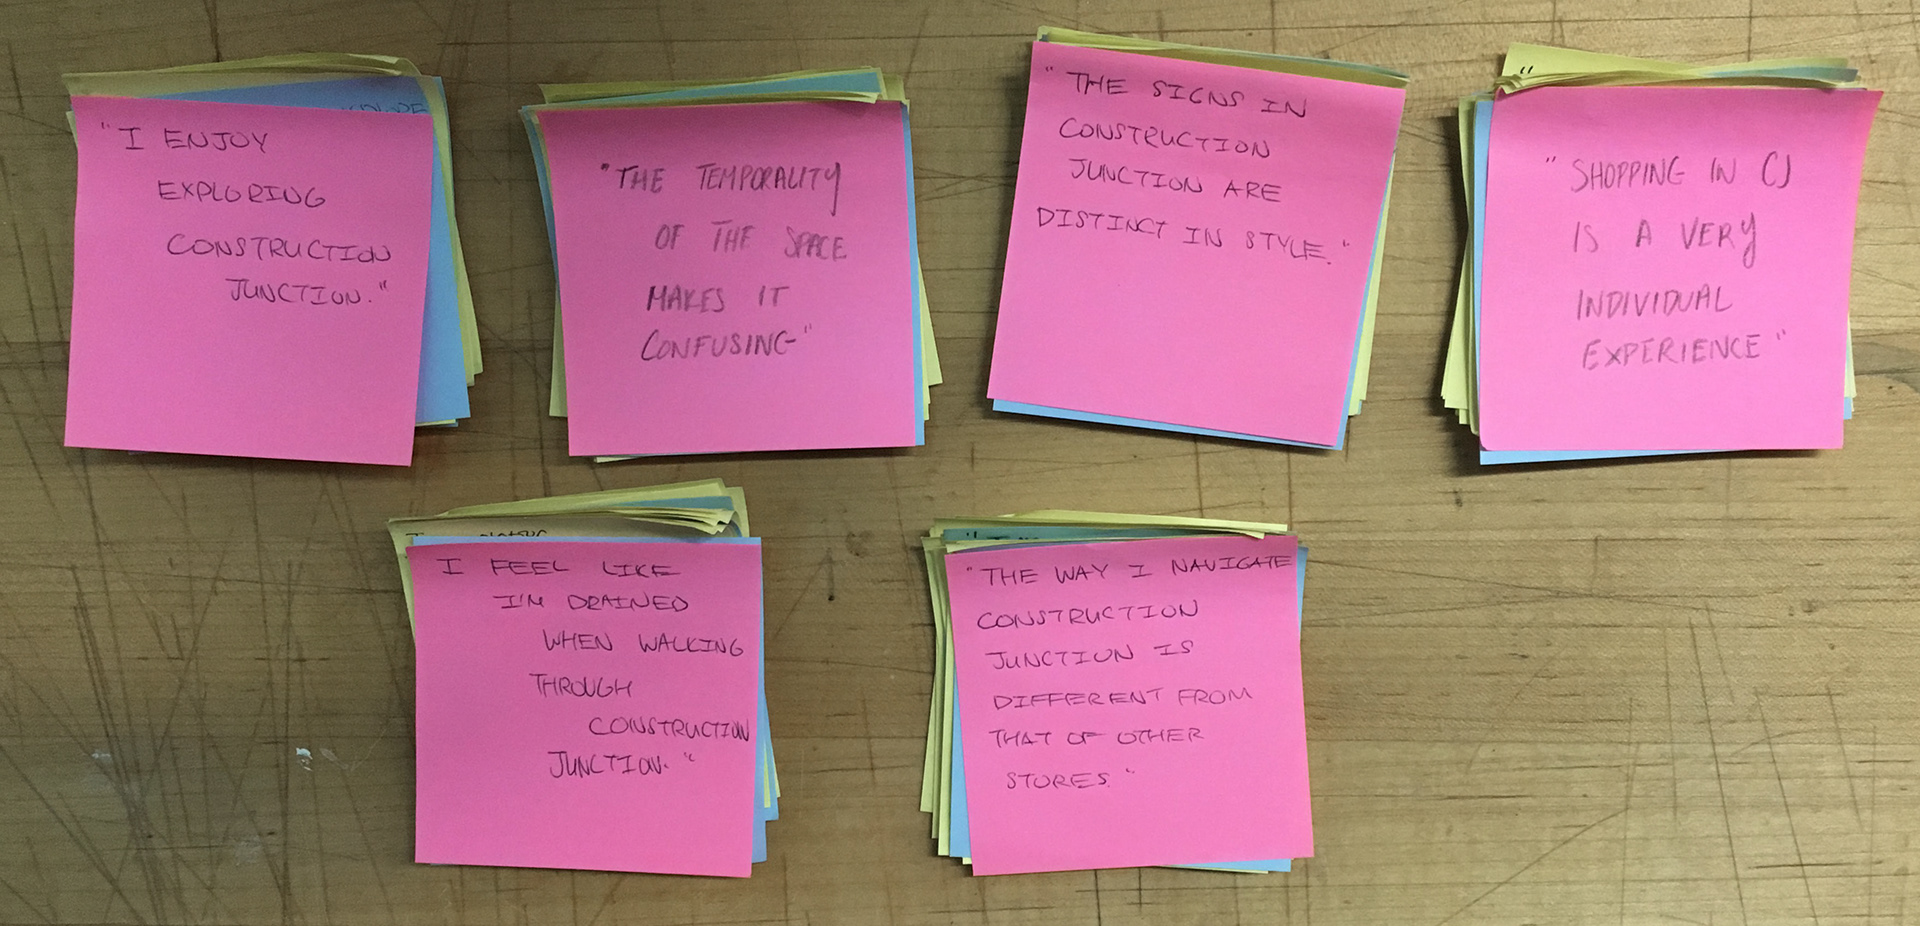 "I ENJOY
EXPLORING
CONSTRUCTION
JUNCTION."
"THE TEMPORALITY
OF THE SPACE
MAKES IT
CONFUSING"
"THE SIGNS IN
CONSTRUCTION
JUNCTION ARE
DISTINCT IN STYLE."
"SHOPPING IN CJ
IS A VERY
INDIVIDUAL
EXPERIENCE"
I FEEL LIKE
I'M DRAINED
WHEN WALKING
THROUGH
CONSTRUCTION
JUNCTION."
"THE WAY I NAVIGATE
CONSTRUCTION
JUNCTION IS
DIFFERENT FROM
THAT OF OTHER
STORES."